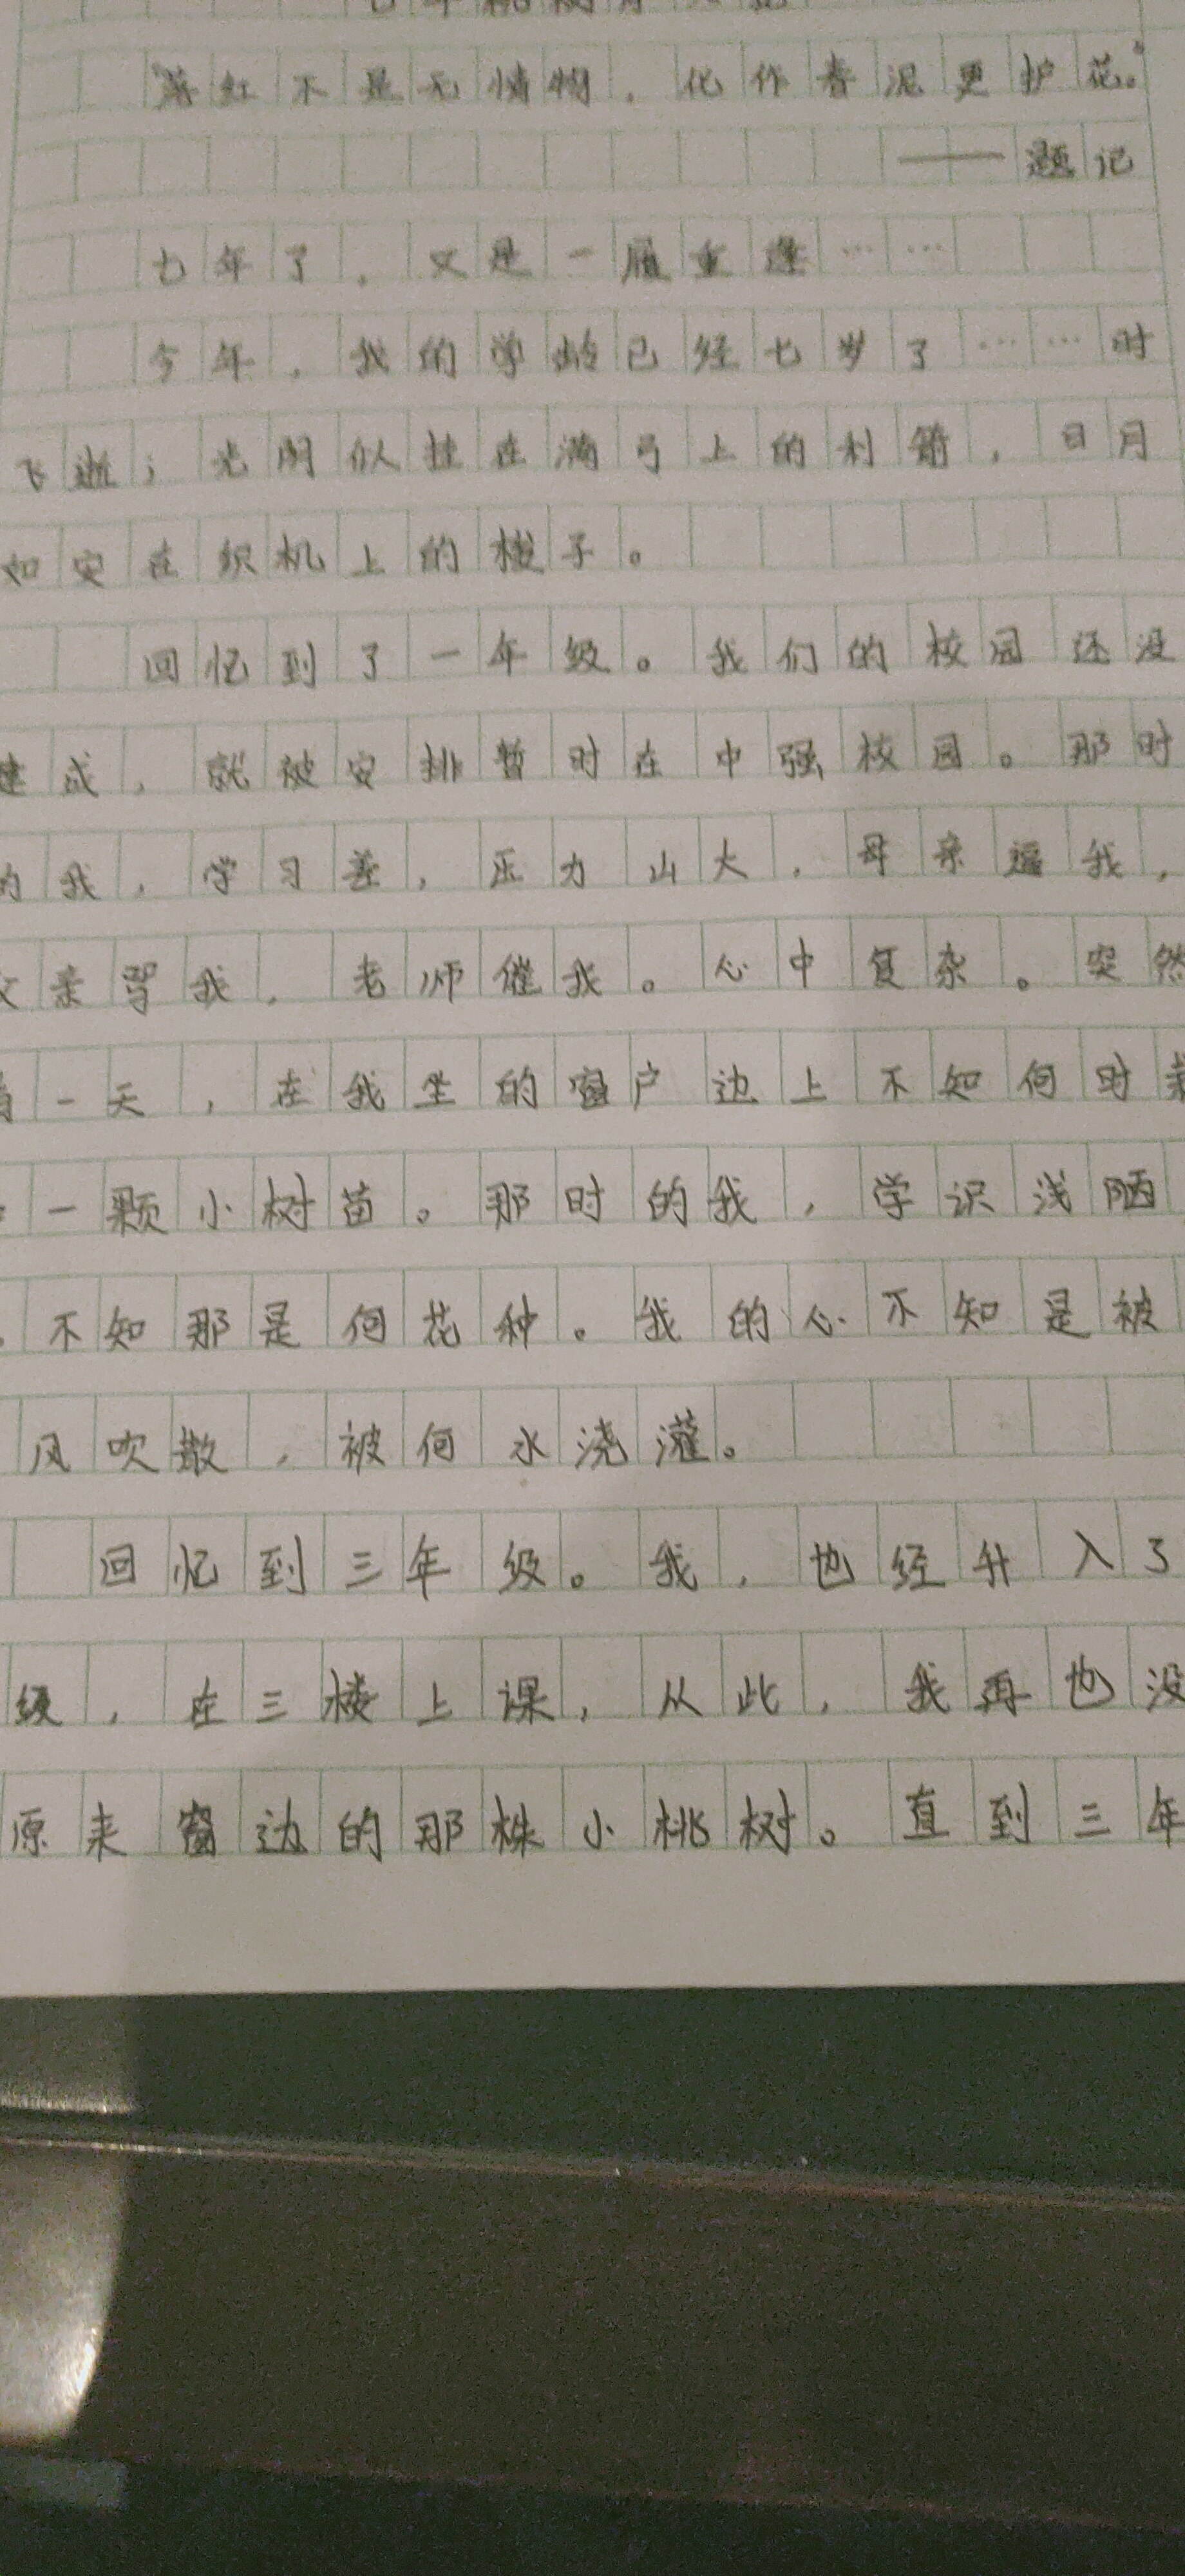 落红不是无情物，化作春泥更护花。"
——题记
七年了，又是一履重逢……
今年，我的学龄已经七岁了……时
飞逝；光阴似挂在满弓上的利箭，日月
如安在织机上的梭子。
回忆到了一年级。我们的校园还没
建成，就被安排暂时在中强校园。那时
的我，学习差，压力山大，母亲逼我，
父亲骂我，老师催我。心中复杂。突然
有一天，在我坐的窗户边上不知何时栽
一颗小树苗。那时的我，学识浅陋
，不知那是何花种。我的心不知是被
风吹散，被何水浇灌。
回忆到三年级。我，也经升入了
级，在三楼上课，从此，我再也没
原来窗边的那株小桃树。直到三年